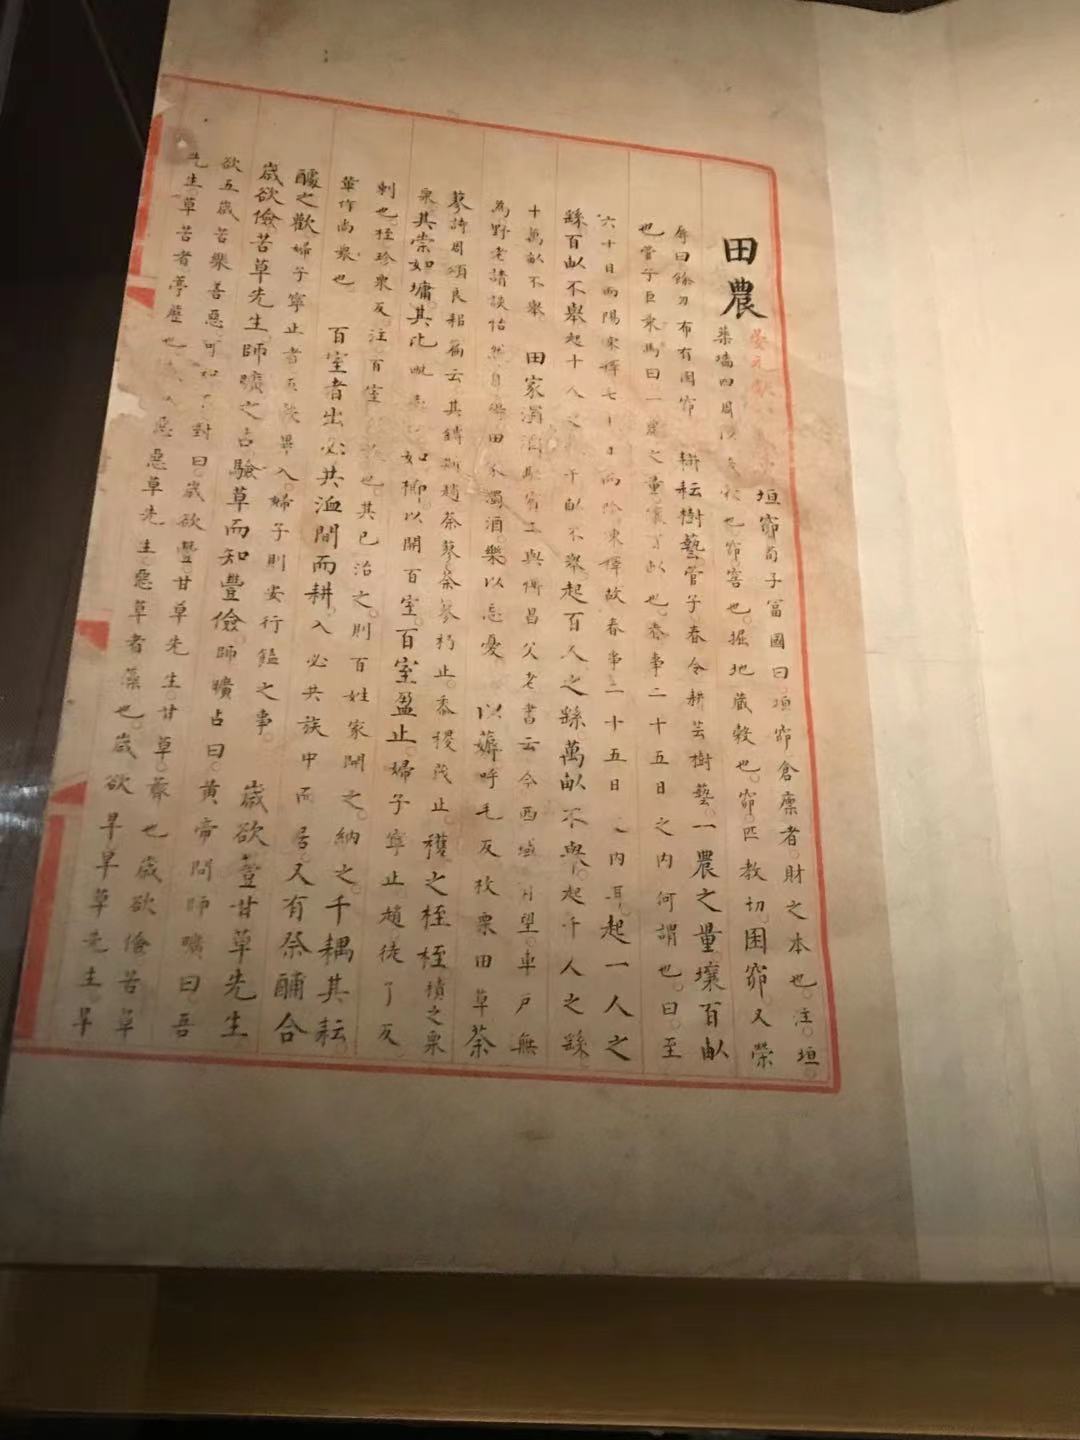 田農
垣窌荀子冨國曰垣窌倉廩者財之本也注垣
築墻四周 也窌窖也掘地蔵穀也窌匹教切囷窌又榮
辱曰餘刀布有囷窌 耕耘樹藝管子春令耕芸樹藝一農之量壤百畝
也管子巨乘馬曰一農之量壤百畝也春事二十五日之内何謂也曰至
六十日而陽凍釋七十日而陰凍釋故春事二十五日之内耳起一人之
繇百畝不舉起十人之繇千畝不舉起百人之繇萬畝不舉起千人之繇
十萬畝不舉 田家濁酒 與 昌父老書云今西域有望車戶無
為野老請談怡然自得田家濁酒樂以忘憂 以薅呼毛反拔栗田草荼
蓼詩周頌良耜篇云其鎛斯趙荼蓼荼蓼朽止黍稷茂止穫之桎桎積之栗
栗其崇如墉其比 如櫛以開百室百室盈止婦子寧止趙徒了反
刺也桎珍栗反注百室 也其已治之則百姓家開之納之千耦其耘
輩作尚衆也 百室者出必共洫間而耕入必共族中而居又有祭酺合
醵之歡婦子寧止者 畢入婦子則安行饁之事 歲欲豐甘草先生
歲欲儉苦草先生師曠之占驗草而知豐儉師曠占曰黄帝問師曠曰吾
欲五歲苦樂善惡可知 對曰歲欲豐甘草先生甘草薺也歲欲儉苦草
先生草苦者葶藶也 惡惡草先生惡草者藻也歲欲旱旱草先生旱